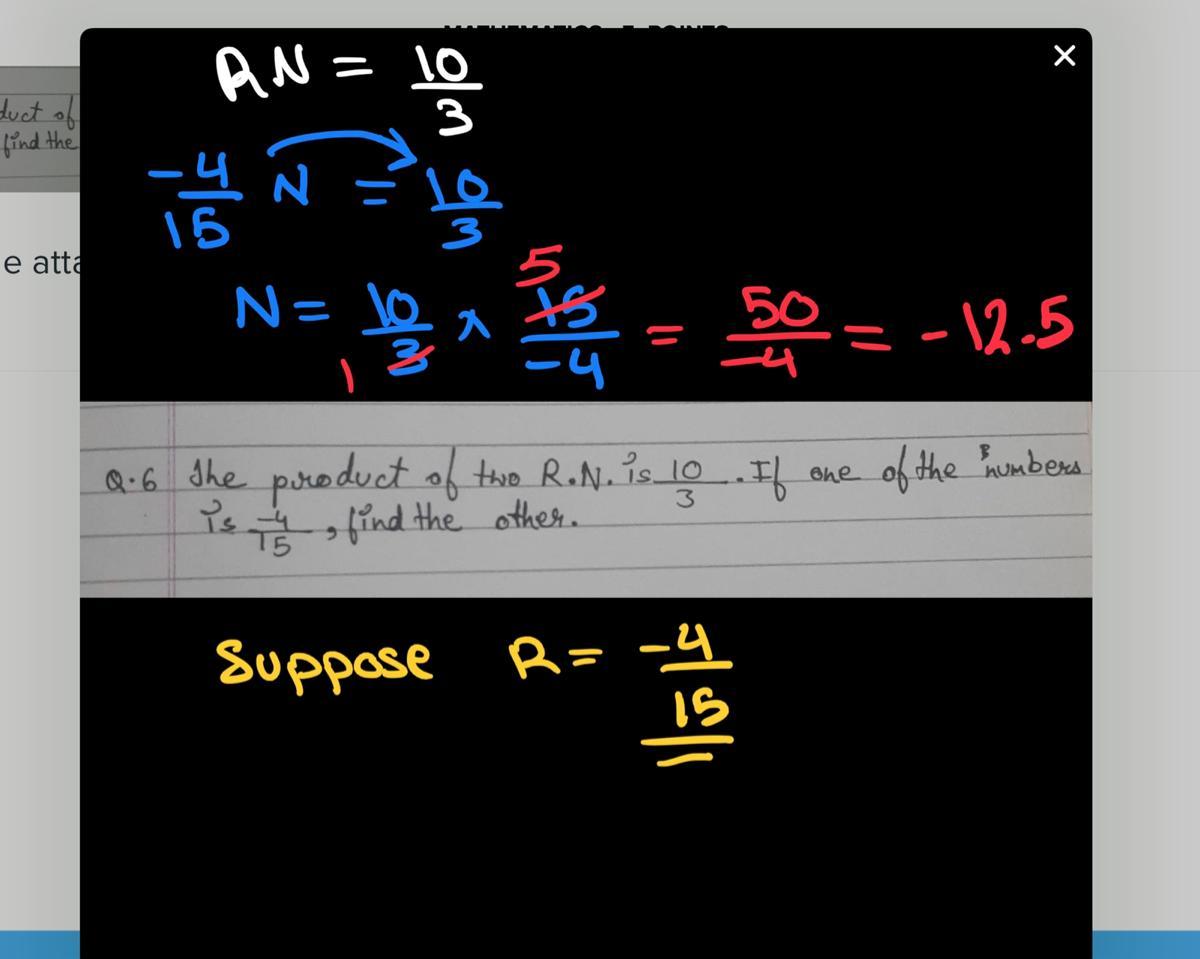 MATHEMATICS 5 POINTS
RN = 10/3
duct of
find the
-4/15 N = 10/3
e atta
N = 10/3 × 15/-4 = 50/-4 = -12.5
5
1
Q.6 The product of two R.N. is 10/3. If one of the numbers
is -4/15, find the other.
Suppose R = -4/15